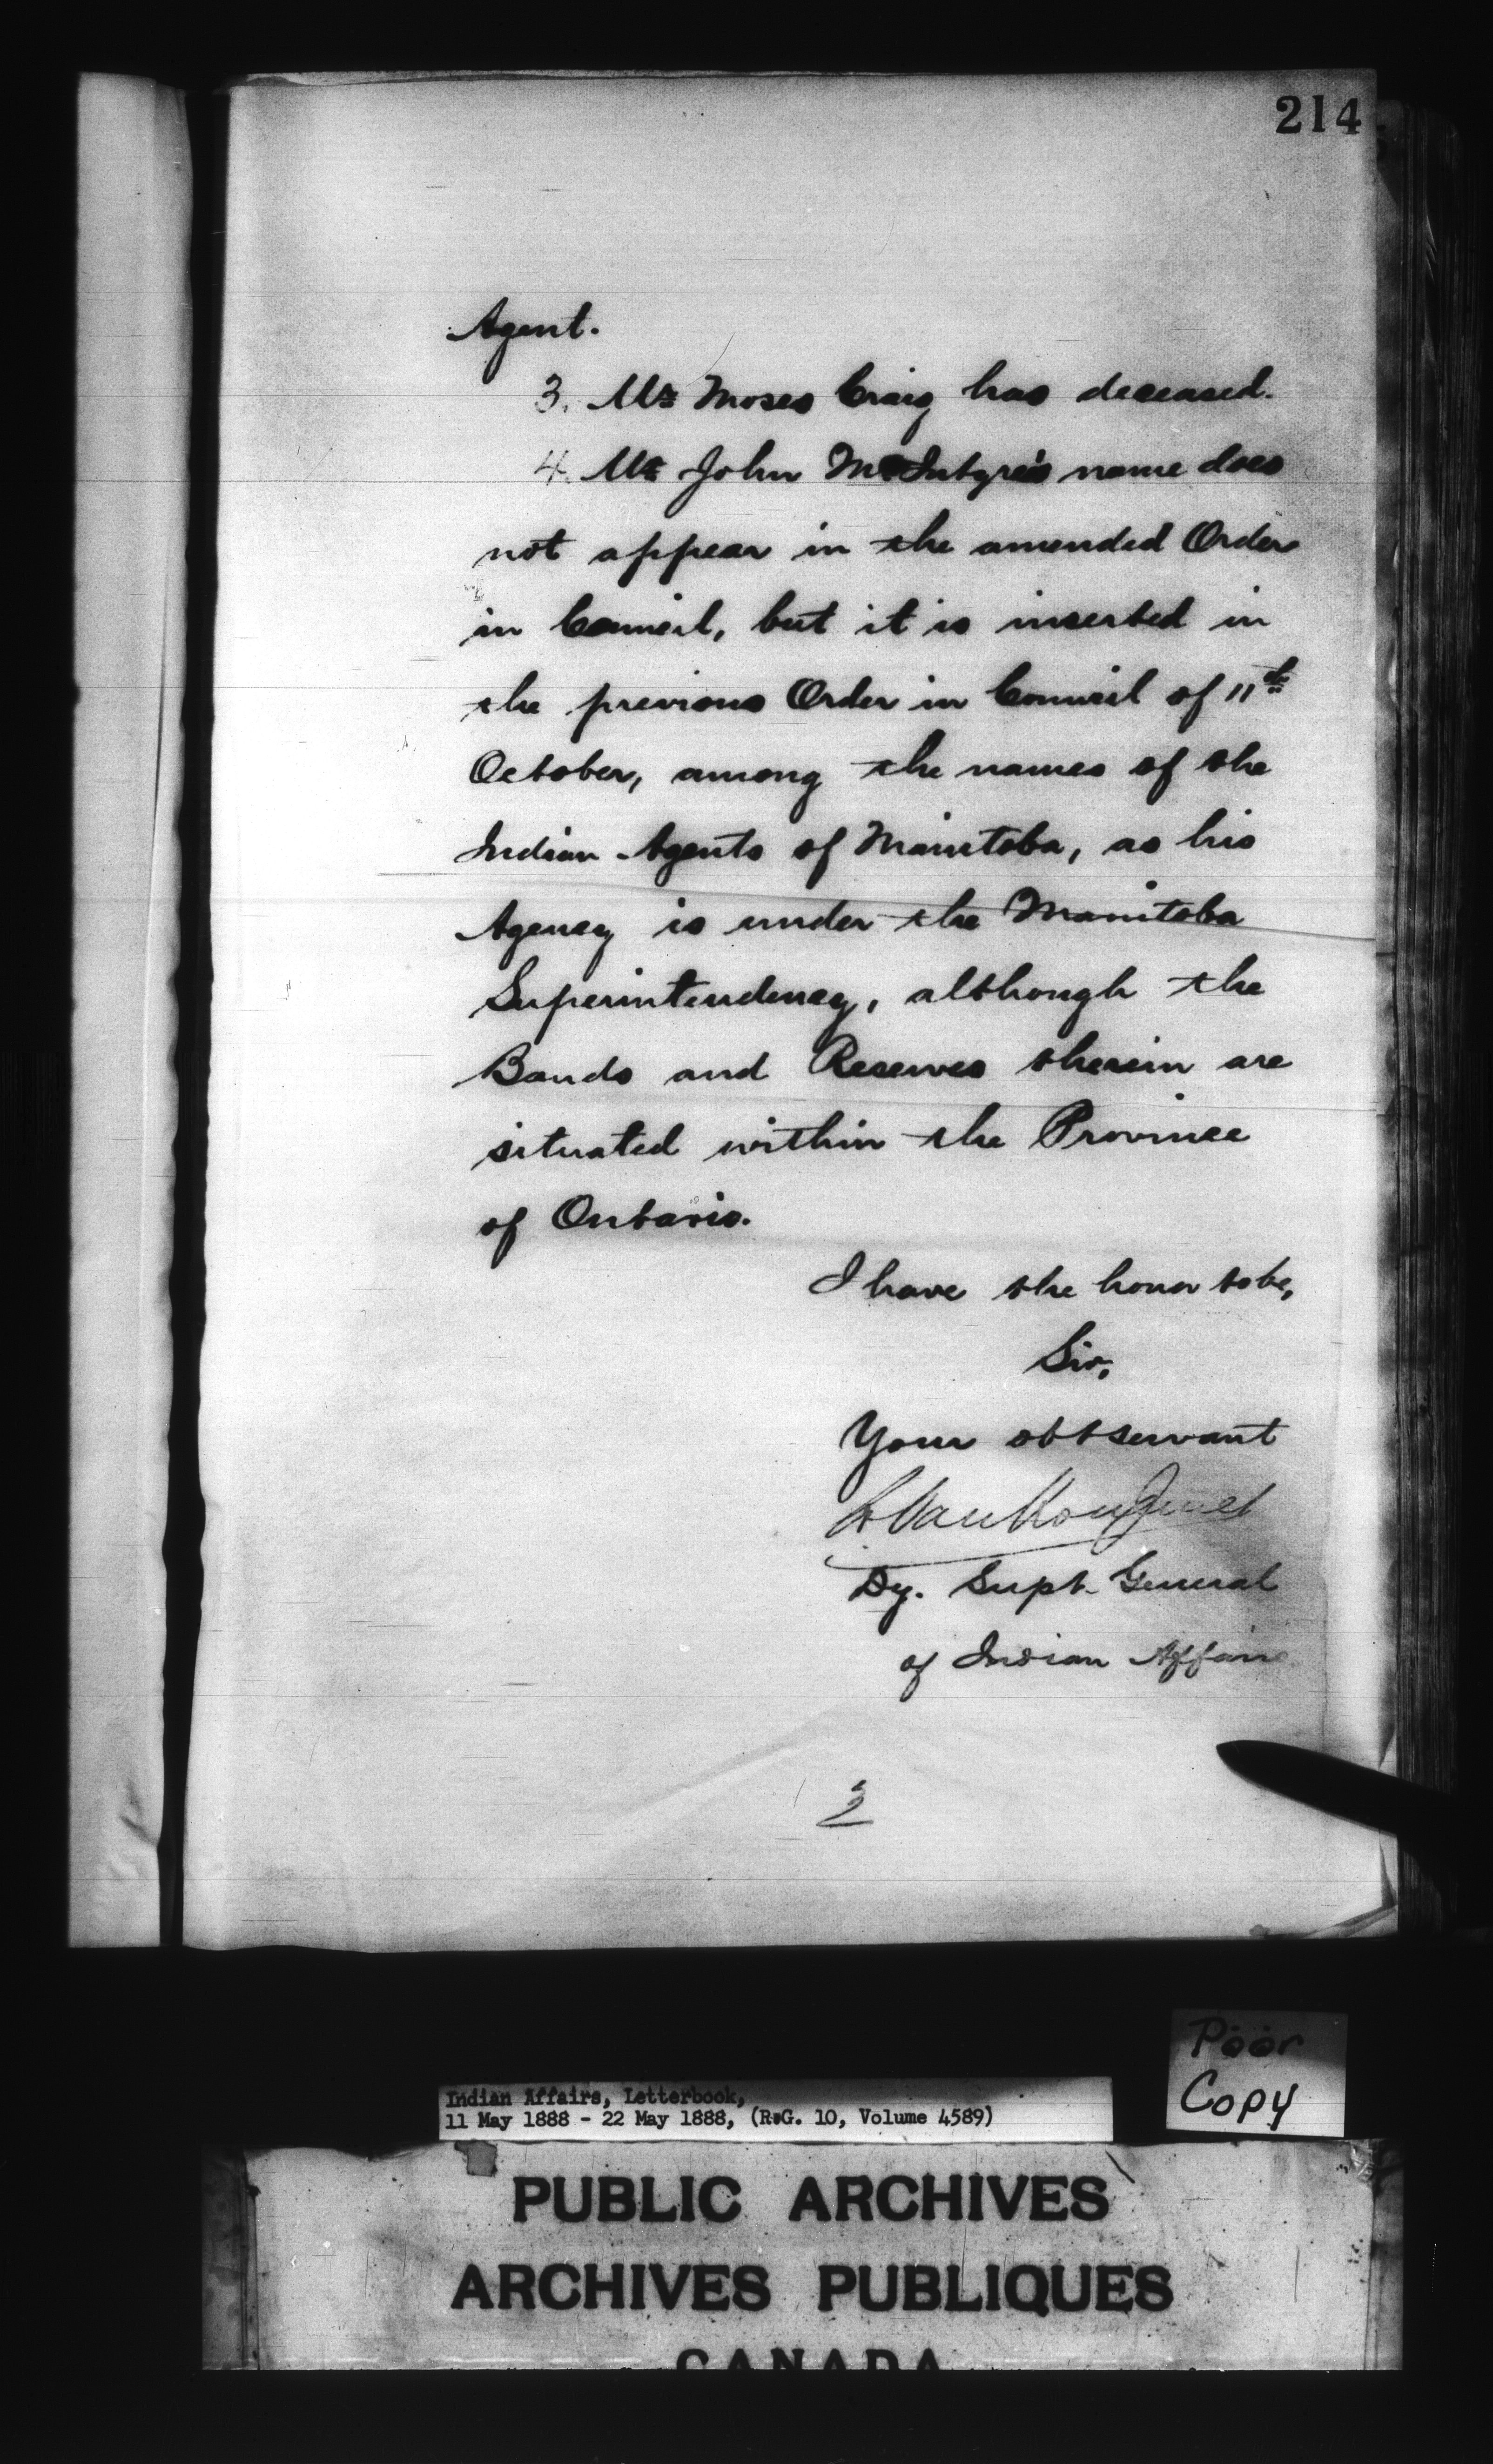 214
Agent.
3. Mr Moses Craig has deceased.
4. Mr John McIntyre's name does
not appear in the amended Order
in Council, but it is inserted in
the previous Order in Council of 11th
October, among the names of the
Indian Agents of Manitoba, as his
Agency is under the Manitoba
Superintendency, although the
Bands and Reserves therein are
situated within the Province
of Ontario.
I have the honor to be,
Sir,
Your obt servant
L Vankoughnet
Dy. Supt. General
of Indian Affairs
Poor
Copy
Indian Affairs, Letterbook,
11 May 1888 - 22 May 1888, (R.G. 10, Volume 4589)
PUBLIC ARCHIVES
ARCHIVES PUBLIQUES
CANADA